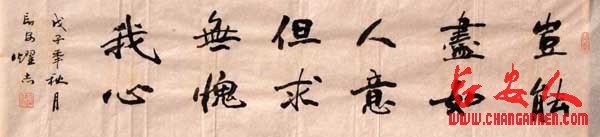 豈能
盡如
人意
但求
無愧
我心
戊子年秋月
長安
长安人
WWW.CHANGANREN.COM